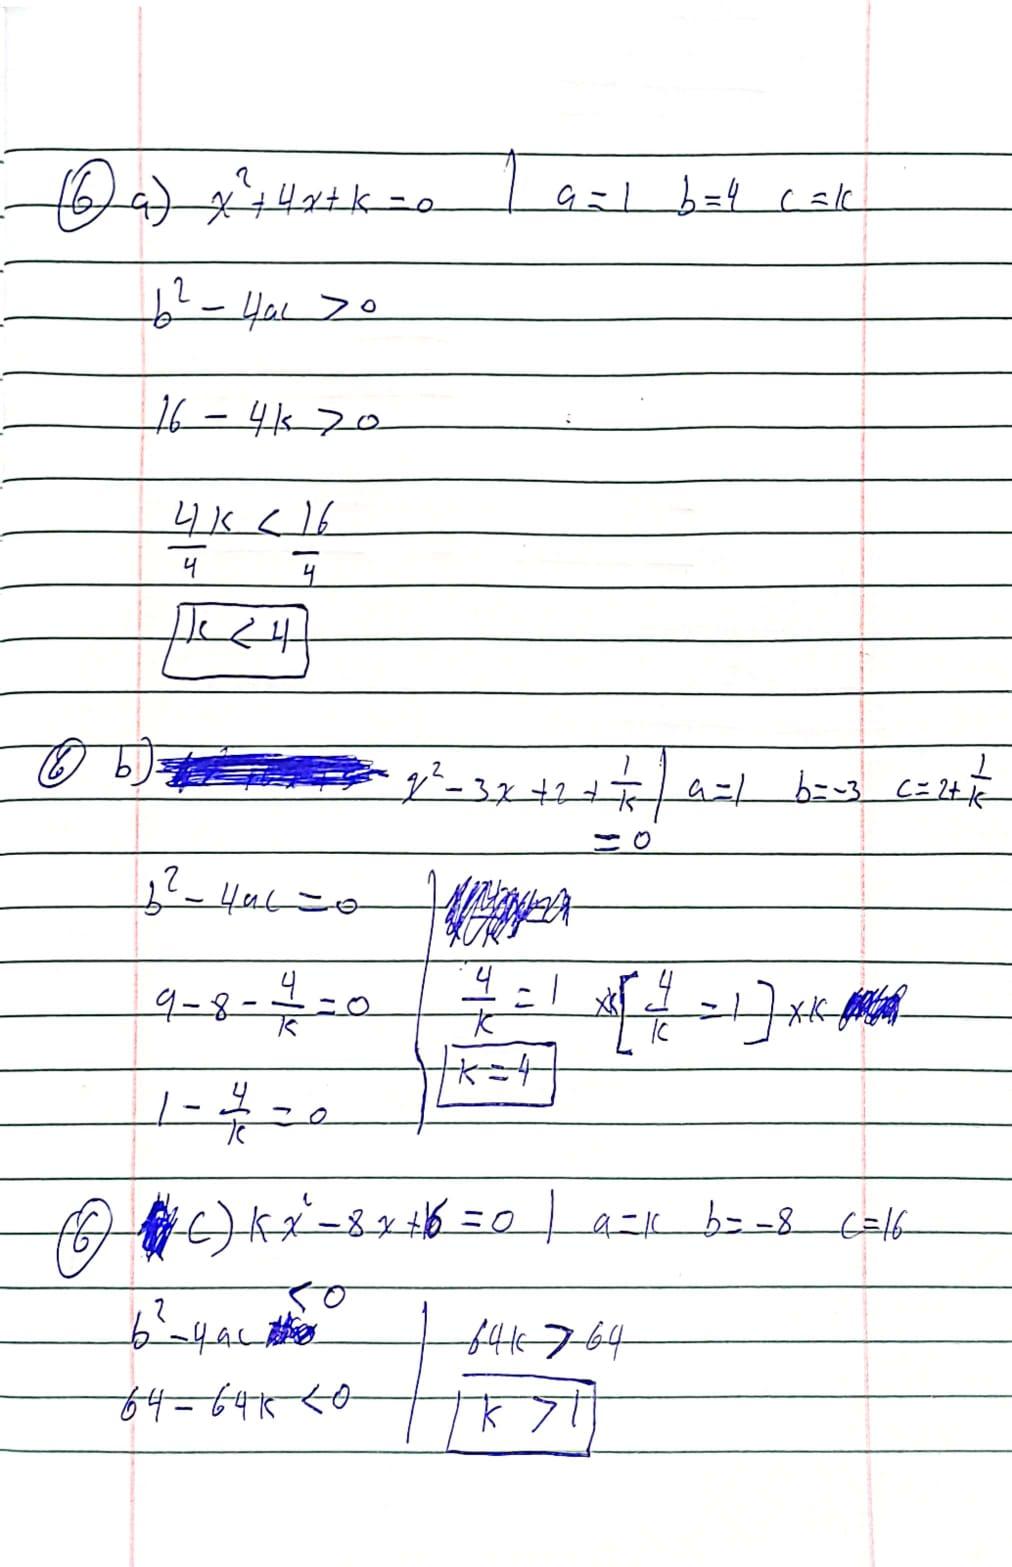 6 a) x² + 4x + k = 0 | a = 1 b = 4 c = k
b² - 4ac > 0
16 - 4k > 0
4k/4 < 16/4
k < 4
6 b) x² - 3x + 2 + 1/k = 0 | a = 1 b = -3 c = 2 + 1/k
b² - 4ac = 0
9 - 8 - 4/k = 0
1 - 4/k = 0
4/k = 1 xk[4/k = 1] x k
k = 4
6 c) kx² - 8x + 16 = 0 | a = k b = -8 c = 16
b² - 4ac < 0
64 - 64k < 0
64k > 64
k > 1